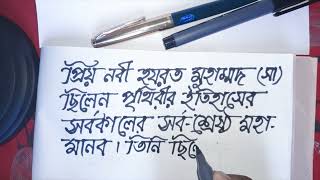 প্রিয় নবী হযরত মুহাম্মদ (সা)
ছিলেন পৃথিবীর ইতিহাসের
সর্বকালের সর্ব-শ্রেষ্ঠ মহা-
মানব। তিনি ছি